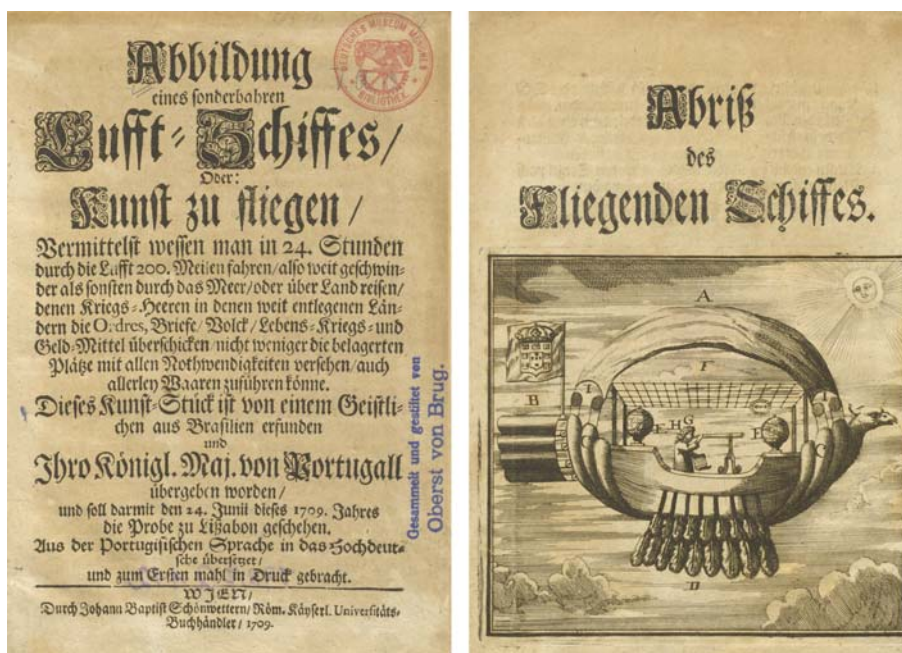 Abbildung
eines sonderbahren
Lufft-Schiffes/
Oder:
Kunst zu fliegen/
Vermittelst wessen man in 24. Stunden
durch die Lufft 200. Meilen fahren/also weit geschwin-
der als sonsten durch das Meer/oder über Land reisen/
denen Kriegs-Heeren in denen weit entlegenen Län-
dern die Ordres, Briefe/ Volck/ Lebens-Kriegs-und
Geld-Mittel überschicken/nicht weniger die belagerten
Plätze mit allen Nothwendigkeiten versehen/auch
allerley Waaren zuführen könne.
Dieses Kunst-Stück ist von einem Geistli-
chen aus Brasilien erfunden
und
Ihro Königl. Maj. von Portugall
übergeben worden/
und soll darmit den 24. Junii dieses 1709. Jahres
die Probe zu Lißabon geschehen.
Aus der Portugisischen Sprache in das Hochdeut-
sche übersetzet/
und zum Ersten mahl in Druck gebracht.
WIEN/
Durch Johann Baptist Schönwettern/ Röm. Käyserl. Universitäts-
Buchhändler/ 1709.
DEUTSCHES MUSEUM MÜNCHEN
BIBLIOTHEK
Gesammelt und gestiftet von
Oberst von Brug.
Abriß
des
Fliegenden Schiffes.
A
F
B
I
E H G E
D